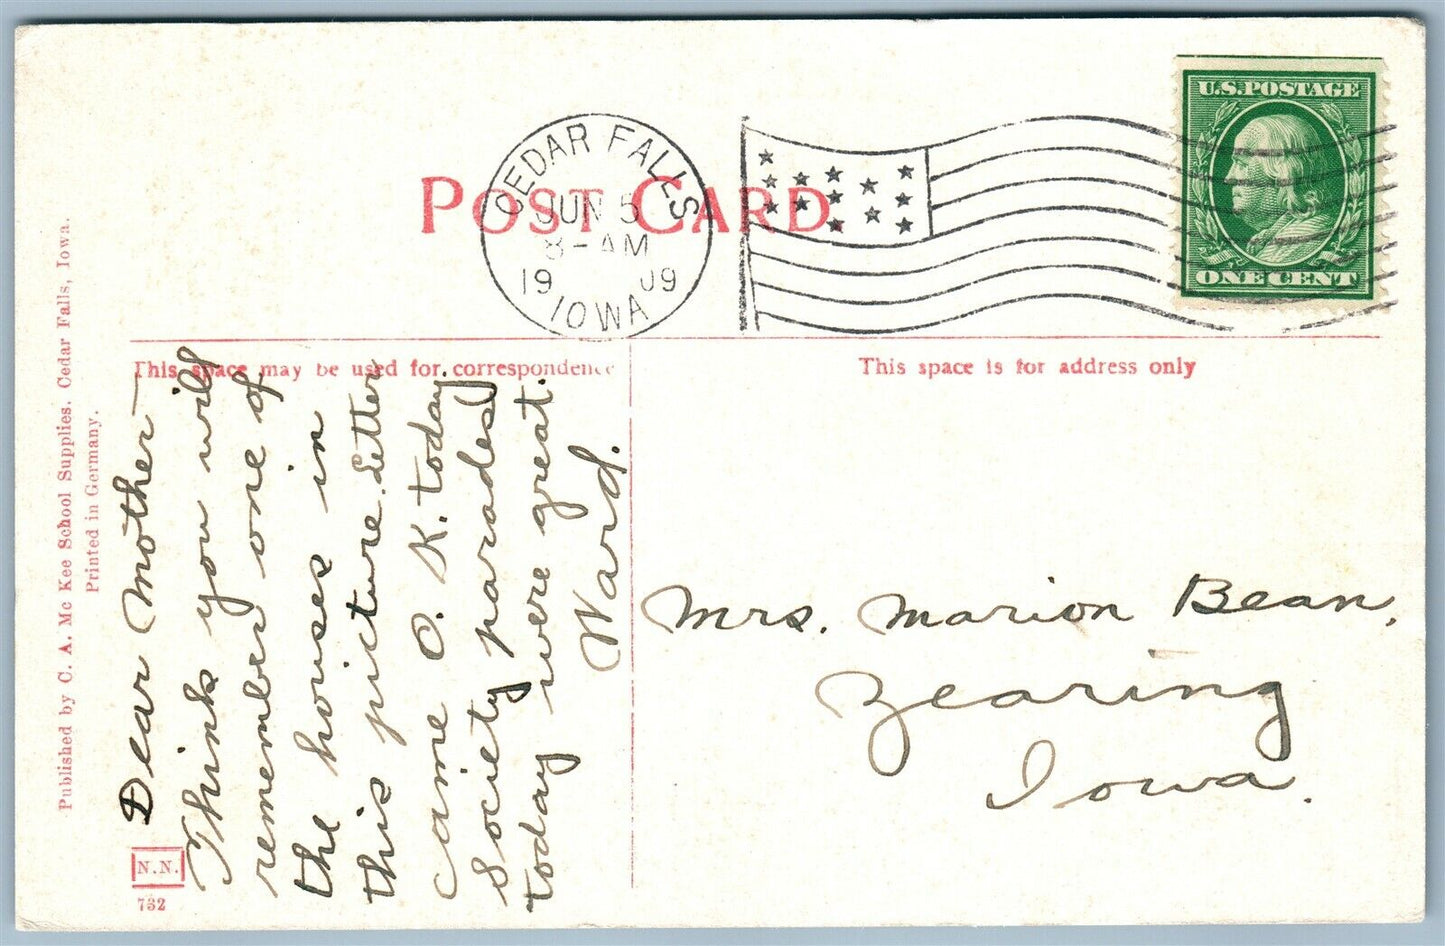 POST CARD
CEDAR FALLS
JUN 5
8-AM
1909
IOWA
U.S. POSTAGE
ONE CENT
This space may be used for correspondence
This space is for address only
Published by C. A. Mc Kee School Supplies. Cedar Falls, Iowa.
Printed in Germany.
Dear Mother—
Think you will
remember one of
the houses in
this picture. Letter
came O. K. today.
Society parades
today were great.
Ward.
Mrs. Marion Bean,
Zearing
Iowa.
N.N.
732